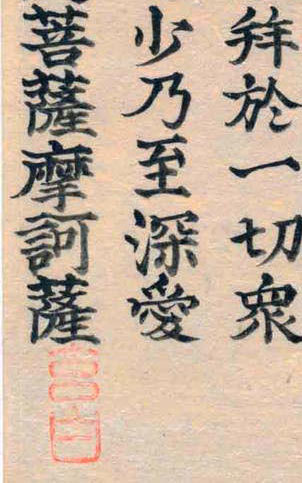 拜於一切衆
少乃至深愛
菩薩摩訶薩